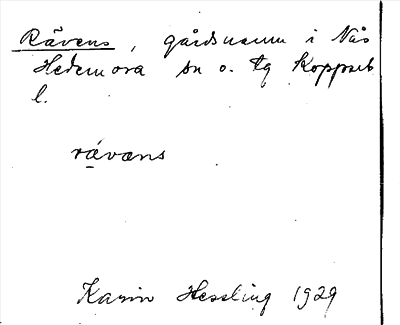 Rävens, gårdsnamn i Nås
Hedemora sn o. tg Kopparb
l.
rävans
Karin Hessling 1929